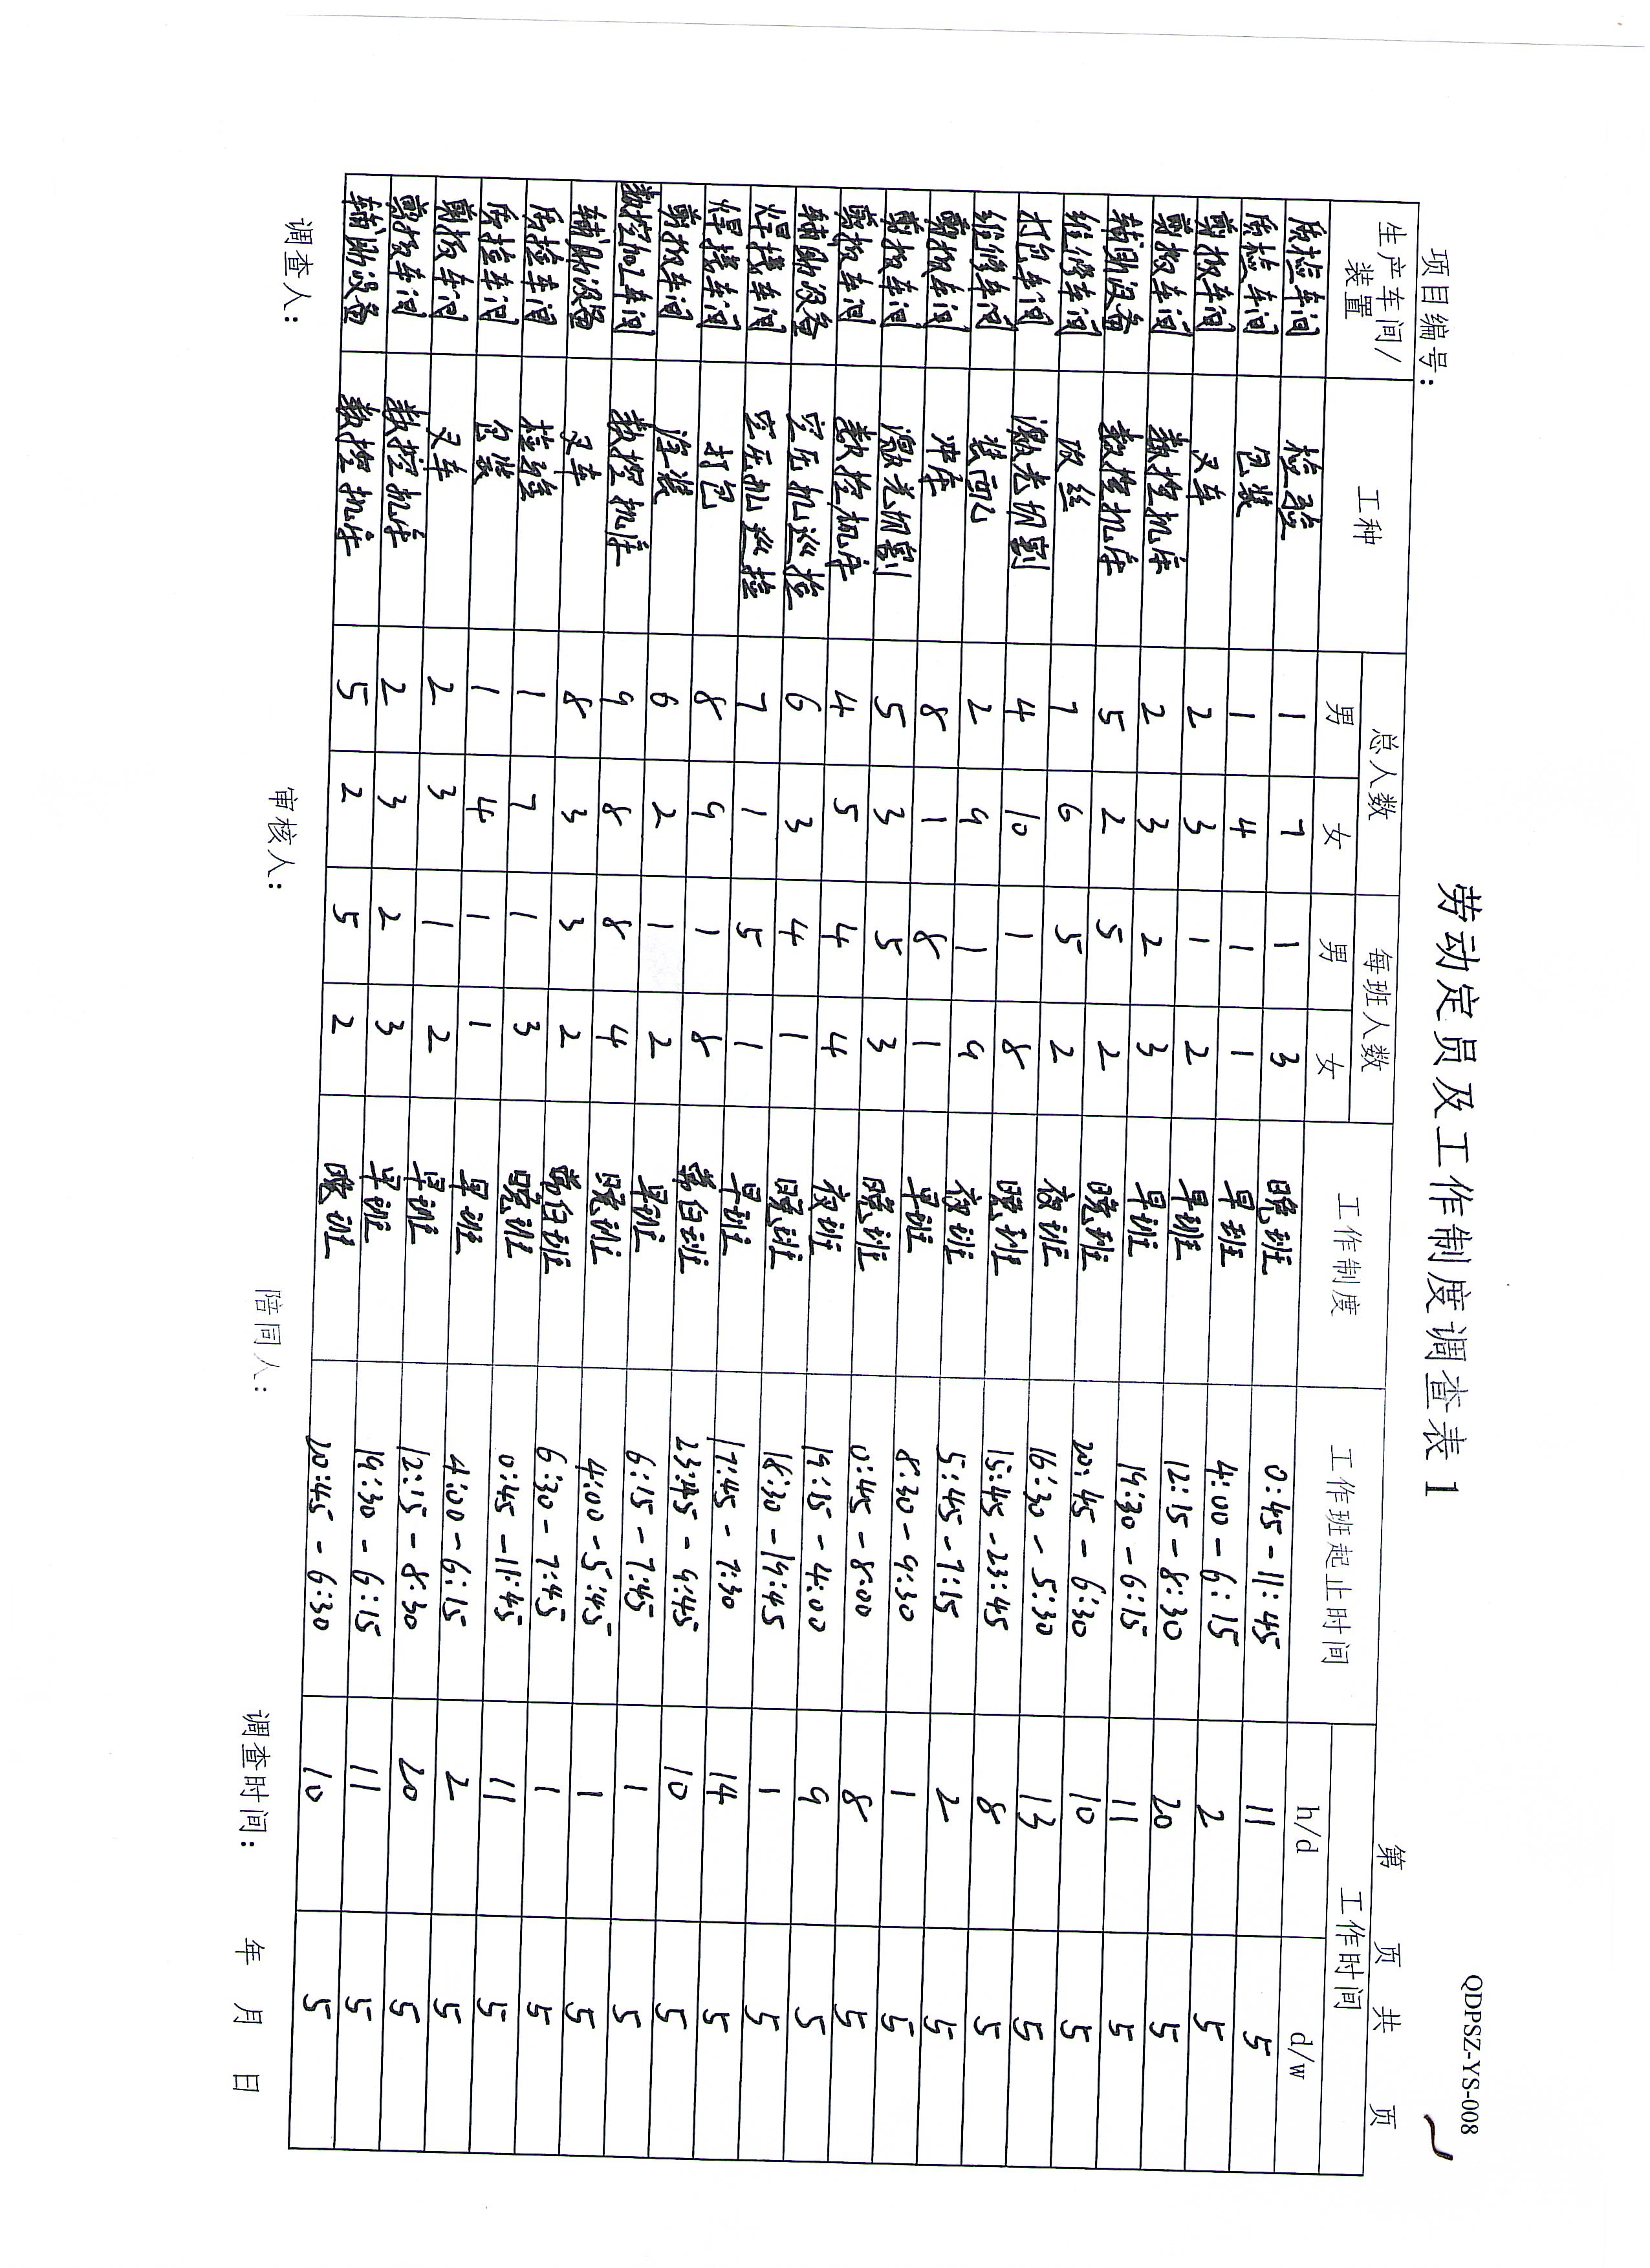 QDPSZ-YS-008
劳动定员及工作制度调查表1
项目编号：
第 页 共 页
生产车间/装置 工种 总人数 每班人数 工作制度 工作班起止时间 工作时间
男 女 男 女 h/d d/w
质检车间 检验 1 7 1 3 晚班 0:45-11:45 11 5
质检车间 包装 1 4 1 1 早班 4:00-6:15 2 5
剪板车间 叉车 2 3 1 2 早班 12:15-8:30 20 5
剪板车间 数控机床 2 3 2 3 早班 19:30-6:15 11 5
辅助设备 数控机床 5 2 5 2 晚班 20:45-6:30 10 5
维修车间 攻丝 7 6 5 2 夜班 16:30-5:30 13 5
打包车间 激光切割 4 10 1 8 晚班 15:45-23:45 8 5
维修车间 装配 2 9 1 9 夜班 5:45-7:15 2 5
剪板车间 冲床 8 1 8 1 早班 8:30-9:30 1 5
剪板车间 激光切割 5 3 5 3 晚班 0:45-8:00 8 5
剪板车间 数控机床 4 5 4 4 夜班 19:15-4:00 9 5
辅助设备 空压机巡检 6 3 4 1 晚班 18:30-19:45 1 5
焊接车间 空压机巡检 7 1 5 1 早班 17:45-7:30 14 5
焊接车间 打包 8 9 1 8 常白班 23:45-9:45 10 5
剪板车间 涂装 6 2 1 2 早班 6:15-7:45 1 5
数控加工车间 数控机床 9 8 8 4 晚班 4:00-5:45 1 5
辅助设备 叉车 8 3 3 2 常白班 6:30-7:45 1 5
质检车间 检验 1 7 1 3 晚班 0:45-11:45 11 5
质检车间 包装 1 4 1 1 早班 4:00-6:15 2 5
剪板车间 叉车 2 3 1 2 早班 12:15-8:30 20 5
剪板车间 数控机床 2 3 2 3 早班 19:30-6:15 11 5
辅助设备 数控机床 5 2 5 2 晚班 20:45-6:30 10 5
调查人： 审核人： 陪同人： 调查时间： 年 月 日